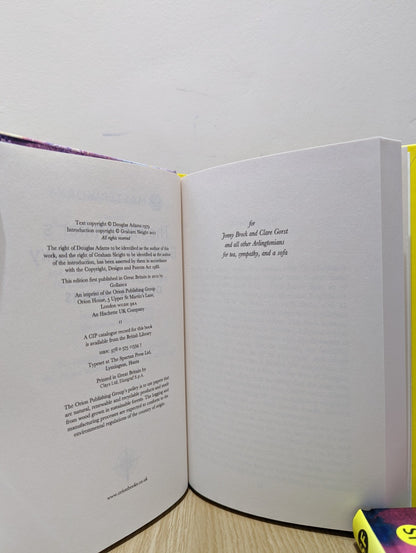 Text copyright © Douglas Adams 1979
Introduction copyright © Graham Sleight 2011
All rights reserved
The right of Douglas Adams to be identified as the author of this
work, and the right of Graham Sleight to be identified as the author
of the introduction, has been asserted by them in accordance
with the Copyright, Designs and Patents Act 1988.
This edition first published in Great Britain in 2012 by
Gollancz
An imprint of the Orion Publishing Group
Orion House, 5 Upper St Martin's Lane,
London
An Hachette UK Company
A CIP catalogue record for this book
is available from the British Library
ISBN: 978 0 575
Typeset at The Spartan Press Ltd,
Lymington, Hants
Printed in Great Britain by
Clays Ltd, Elcograf S.p.A.
The Orion Publishing Group's policy is to use papers that
are natural, renewable and recyclable products and made
from wood grown in sustainable forests. The logging and
manufacturing processes are expected to conform to the
environmental regulations of the country of origin.
www.orionbooks.co.uk
for
Jonny Brock and Clare Gorst
and all other Arlingtonians
for tea, sympathy, and a sofa